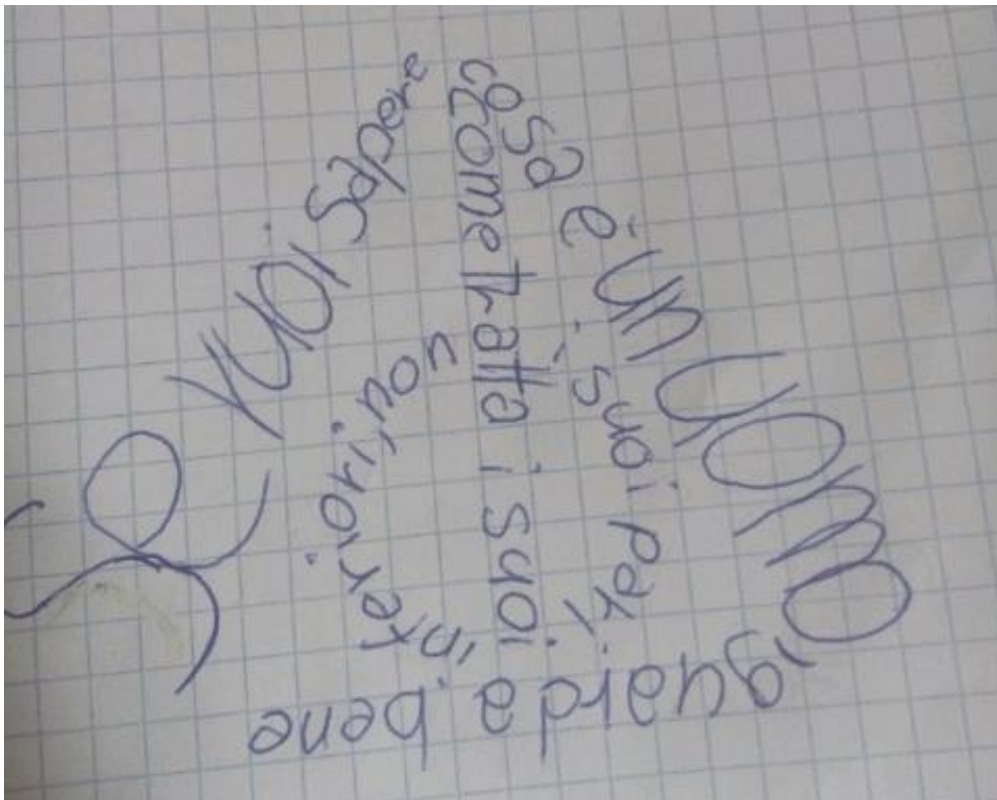 "Se vuoi sapere
cosa è un uomo
, guarda bene
come tratta i suoi
inferiori, non
i suoi pari."